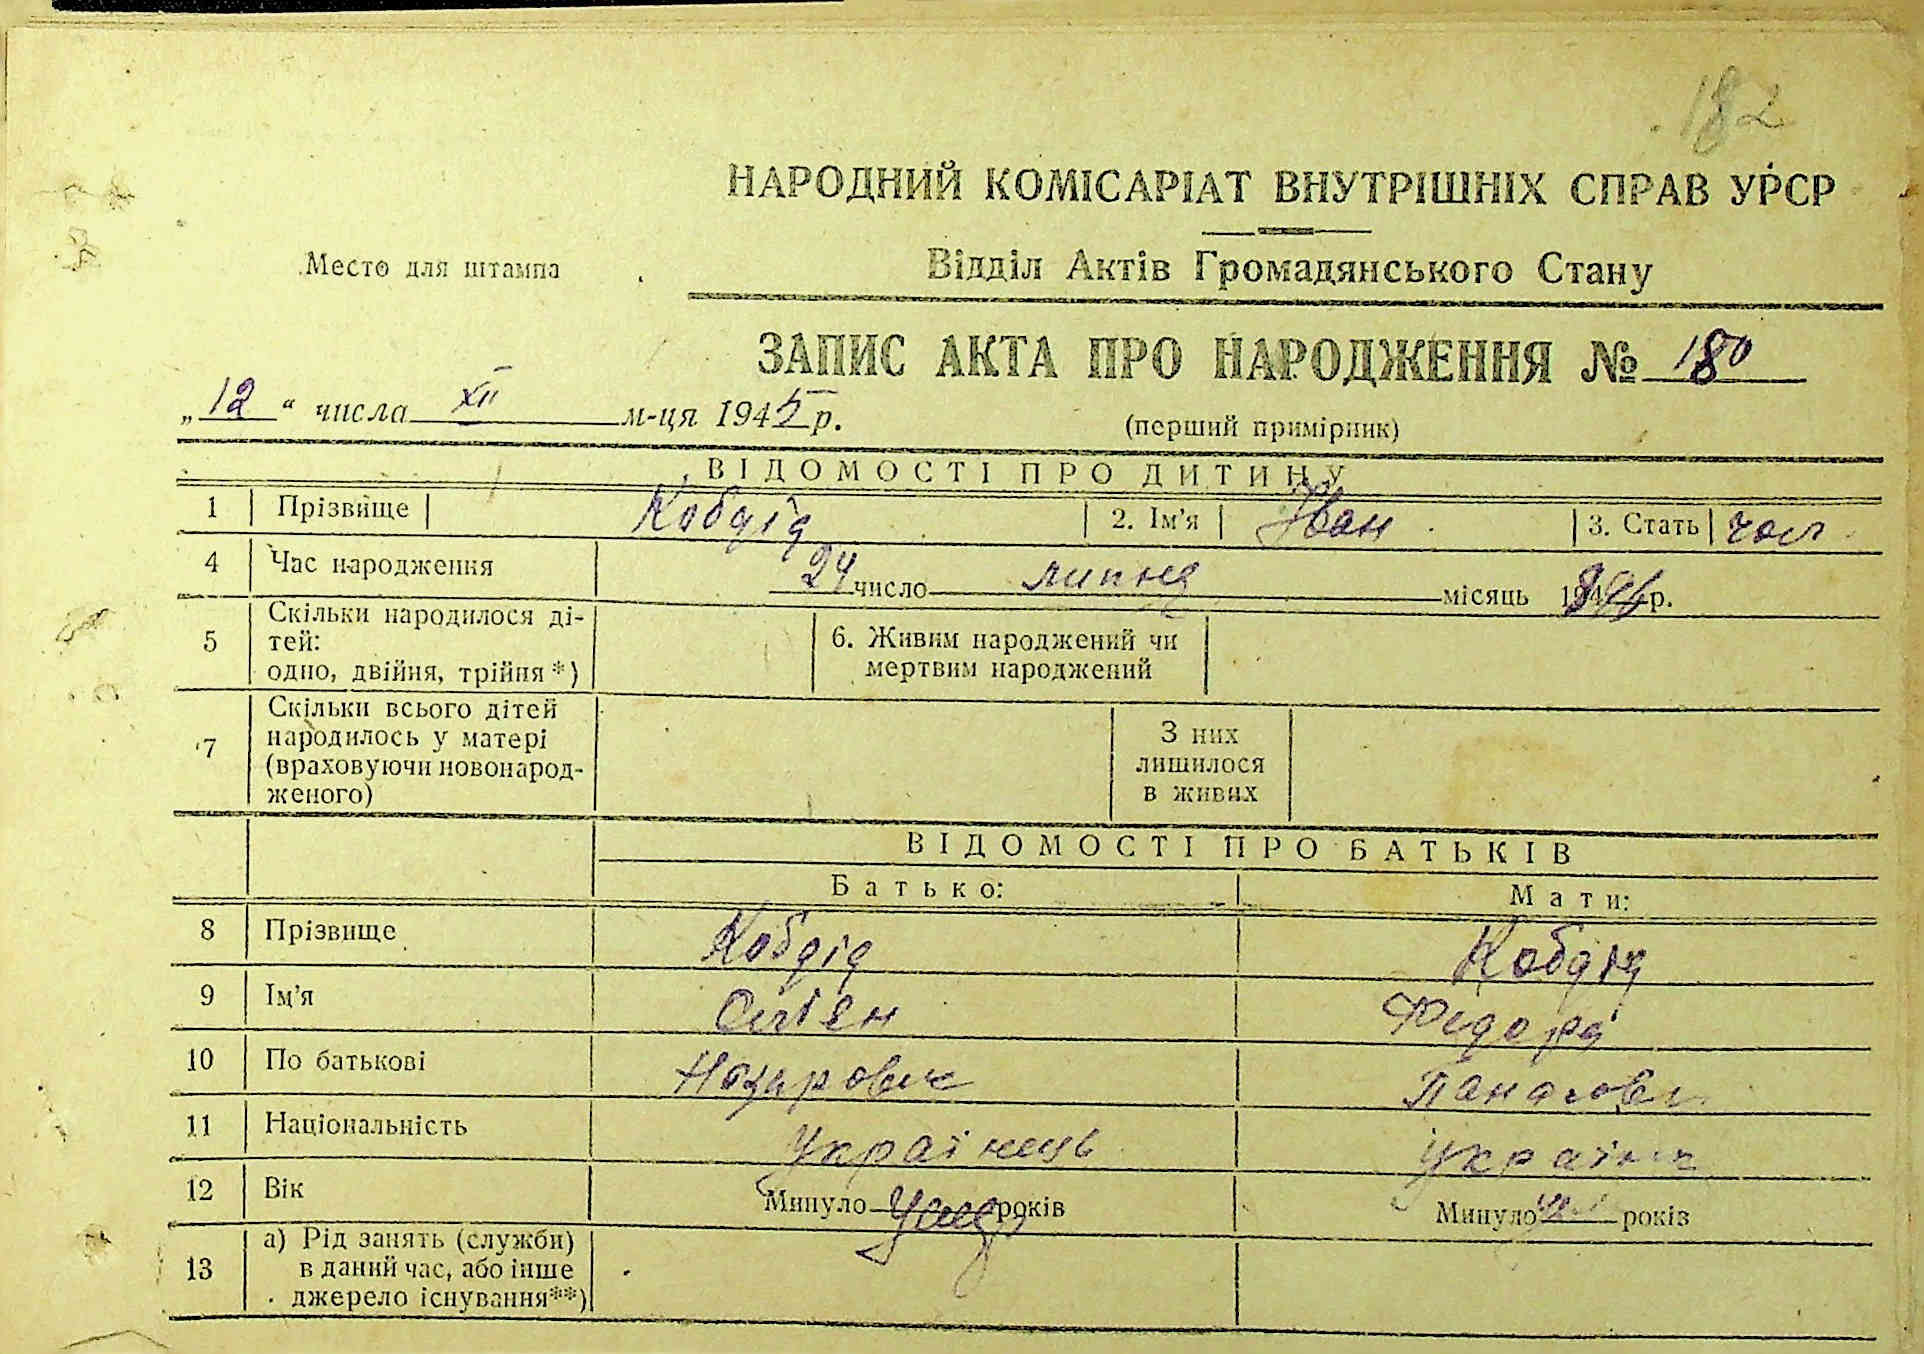 182
НАРОДНИЙ КОМІСАРІАТ ВНУТРІШНІХ СПРАВ УРСР
Место для штампа
Відділ Актів Громадянського Стану
ЗАПИС АКТА ПРО НАРОДЖЕННЯ № 180
„12“ числа XII м-ця 1945 р.
(перший примірник)
ВІДОМОСТІ ПРО ДИТИНУ
1 Прізвище Кобдід 2. Ім'я Іван 3. Стать чол
4 Час народження 24 число липня місяць р.
5 Скільки народилося ді-
тей:
одно, двійня, трійня*)
6. Живим народжений чи
мертвим народжений
7 Скільки всього дітей
народилось у матері
(враховуючи новонарод-
женого)
З них
лишилося
в живих
ВІДОМОСТІ ПРО БАТЬКІВ
Батько: Мати:
8 Прізвище Кобдід Кобдід
9 Ім'я Федора
10 По батькові Назарович Панасовн
11 Національність Українець Українк
12 Вік Минуло років Минуло років
13 а) Рід занять (служби)
в даний час, або інше
джерело існування**)